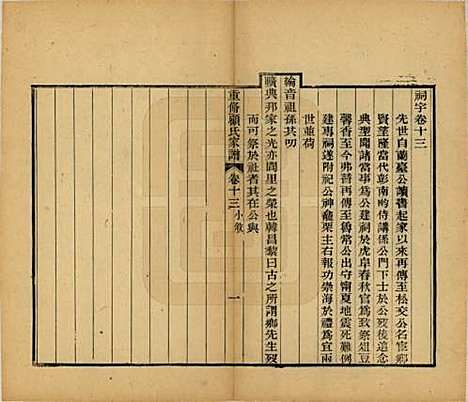 祠宇卷十三
先世自蘭臺公讀書起家以再傳至松交公名宦鄉
賢至隆當代彭南畇侍講係公門下士於公歿後追念
典型聞諸當事爲公建祠於虎阜春秋官爲致祭俎豆
馨香至今弗替魯常公出守甯夏地震死難例
建專祠遂附祀公神龕栗主右報功崇海於禮爲宜
世並荷
綸音祖孫其叨
曠典邦家之光亦閭里之榮也韓昌黎曰古之所謂鄉先生歿
而可祭於社者其在公與
重脩顧氏家譜 卷十三 小敘 一